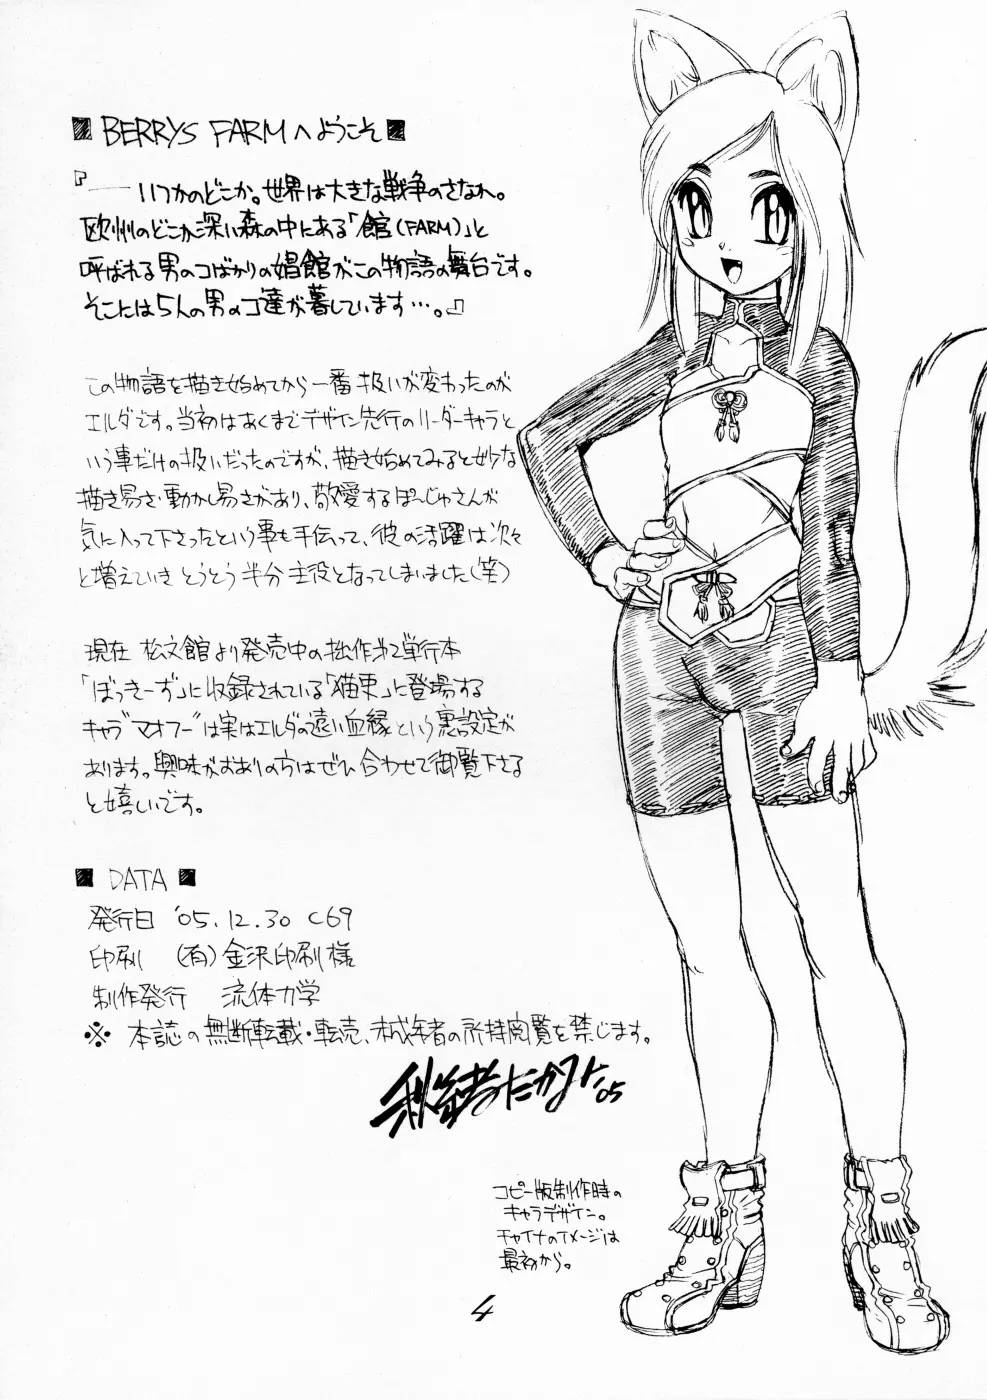 ■ BERRYS FARMへようこそ ■
『――いつかのどこか。世界は大きな戦争のさなか。
欧州のどこか深い森の中にある「館(FARM)」と
呼ばれる男のコばかりの娼館がこの物語の舞台です。
そこには5人の男のコ達が暮しています…。』
この物語を描き始めてから一番扱いが変わったのが
エルダです。当初はあくまでデザイン先行のリーダーキャラと
いう事だけの扱いだったのですが、描き始めてみると妙な
描き易さ・動かし易さがあり、敬愛するぽーじゅさんが
気に入って下さったという事も手伝って、彼の活躍は次々
と増えていきとうとう半分主役となってしまいました(笑)
現在 松文館より発売中の拙作第2単行本
「ぼっきーず」に収録されている「猫東」に登場する
キャラ"マオフー"は実はエルダの遠い血縁という裏設定が
あります。興味がおありの方はぜひ合わせて御覧下さる
と嬉しいです。
■ DATA ■
発行日 '05.12.30 C69
印刷 (有)金沢印刷様
制作発行 流体力学
※ 本誌の無断転載・転売、未成年者の所持閲覧を禁じます。
05
コピー版制作時の
キャラデザイン。
チャイナのイメージは
最初から。
4